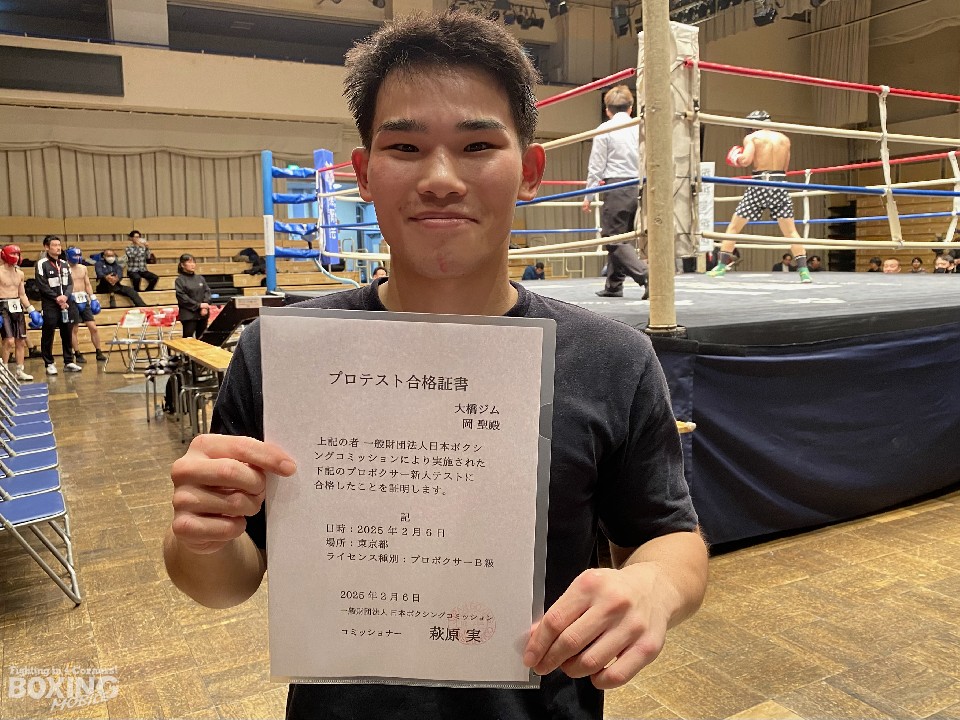 プロテスト合格証書
大橋ジム
岡 聖殿
上記の者 一般財団法人日本ボクシ
ングコミッションにより実施された
下記のプロボクサー新人テストに
合格したことを証明します。
記
日時：2025年2月6日
場所：東京都
ライセンス種別：プロボクサーB級
2025年2月6日
一般財団法人日本ボクシングコミッション
コミッショナー 萩原 実
Fighting in 4 Corners!
BOXING
MOBILE